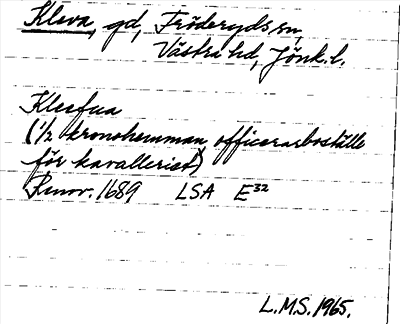 Kleva, gd, Fröderyds sn,
Västra hd, Jönk. l.
Kleefua
(1/2 kronohemman, officersboställe
för kavalleriet)
Renov. 1689 LSA E32
L.M.S. 1965.